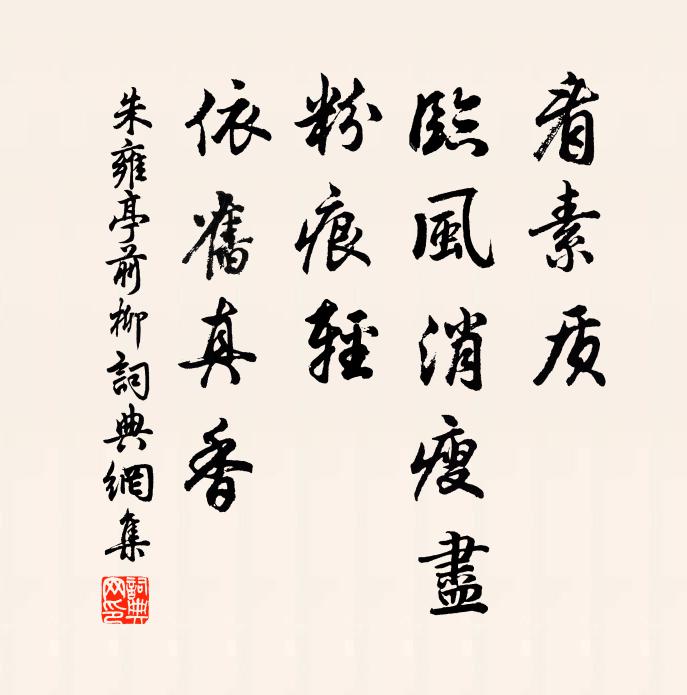 看素质
臨風消瘦盡
粉痕輕
依舊真香
朱雍亭前柳詞典網集
詞典網印